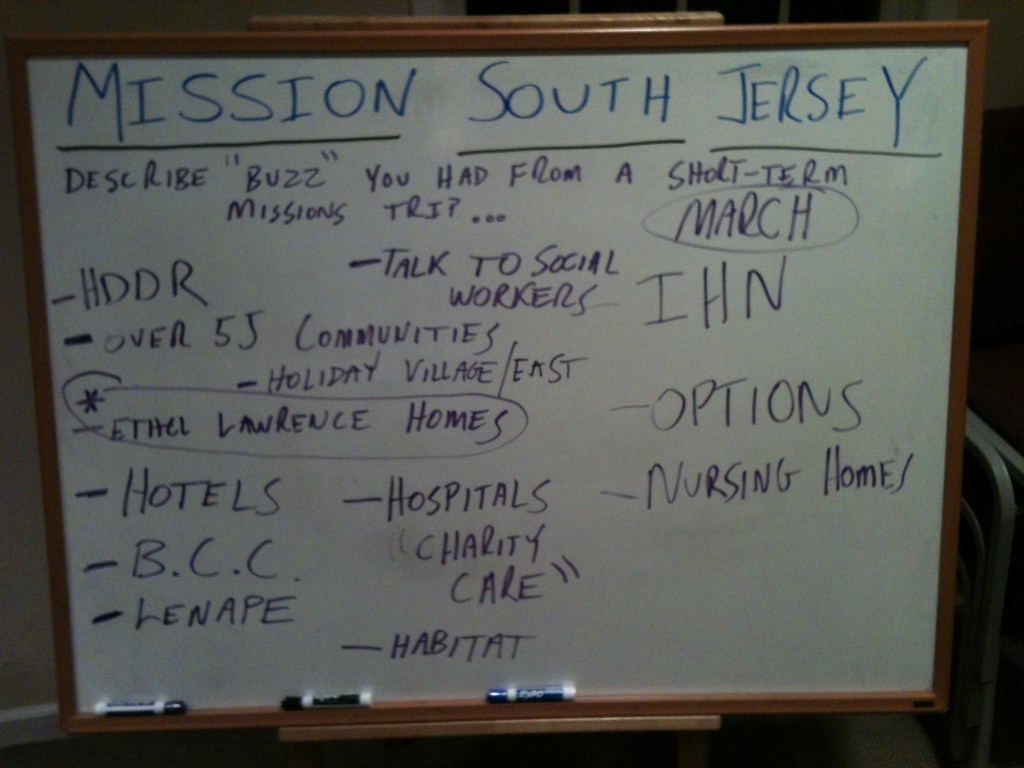 MISSION SOUTH JERSEY
DESCRIBE "BUZZ" YOU HAD FROM A SHORT-TERM
MISSIONS TRIP...
MARCH
- HDDR
- OVER 55 COMMUNITIES
- HOLIDAY VILLAGE/EAST
* - ETHEL LAWRENCE HOMES
- HOTELS
- B.C.C.
- LENAPE
- TALK TO SOCIAL
WORKERS
- HOSPITALS
"CHARITY
CARE"
- HABITAT
- IHN
- OPTIONS
- NURSING HOMES